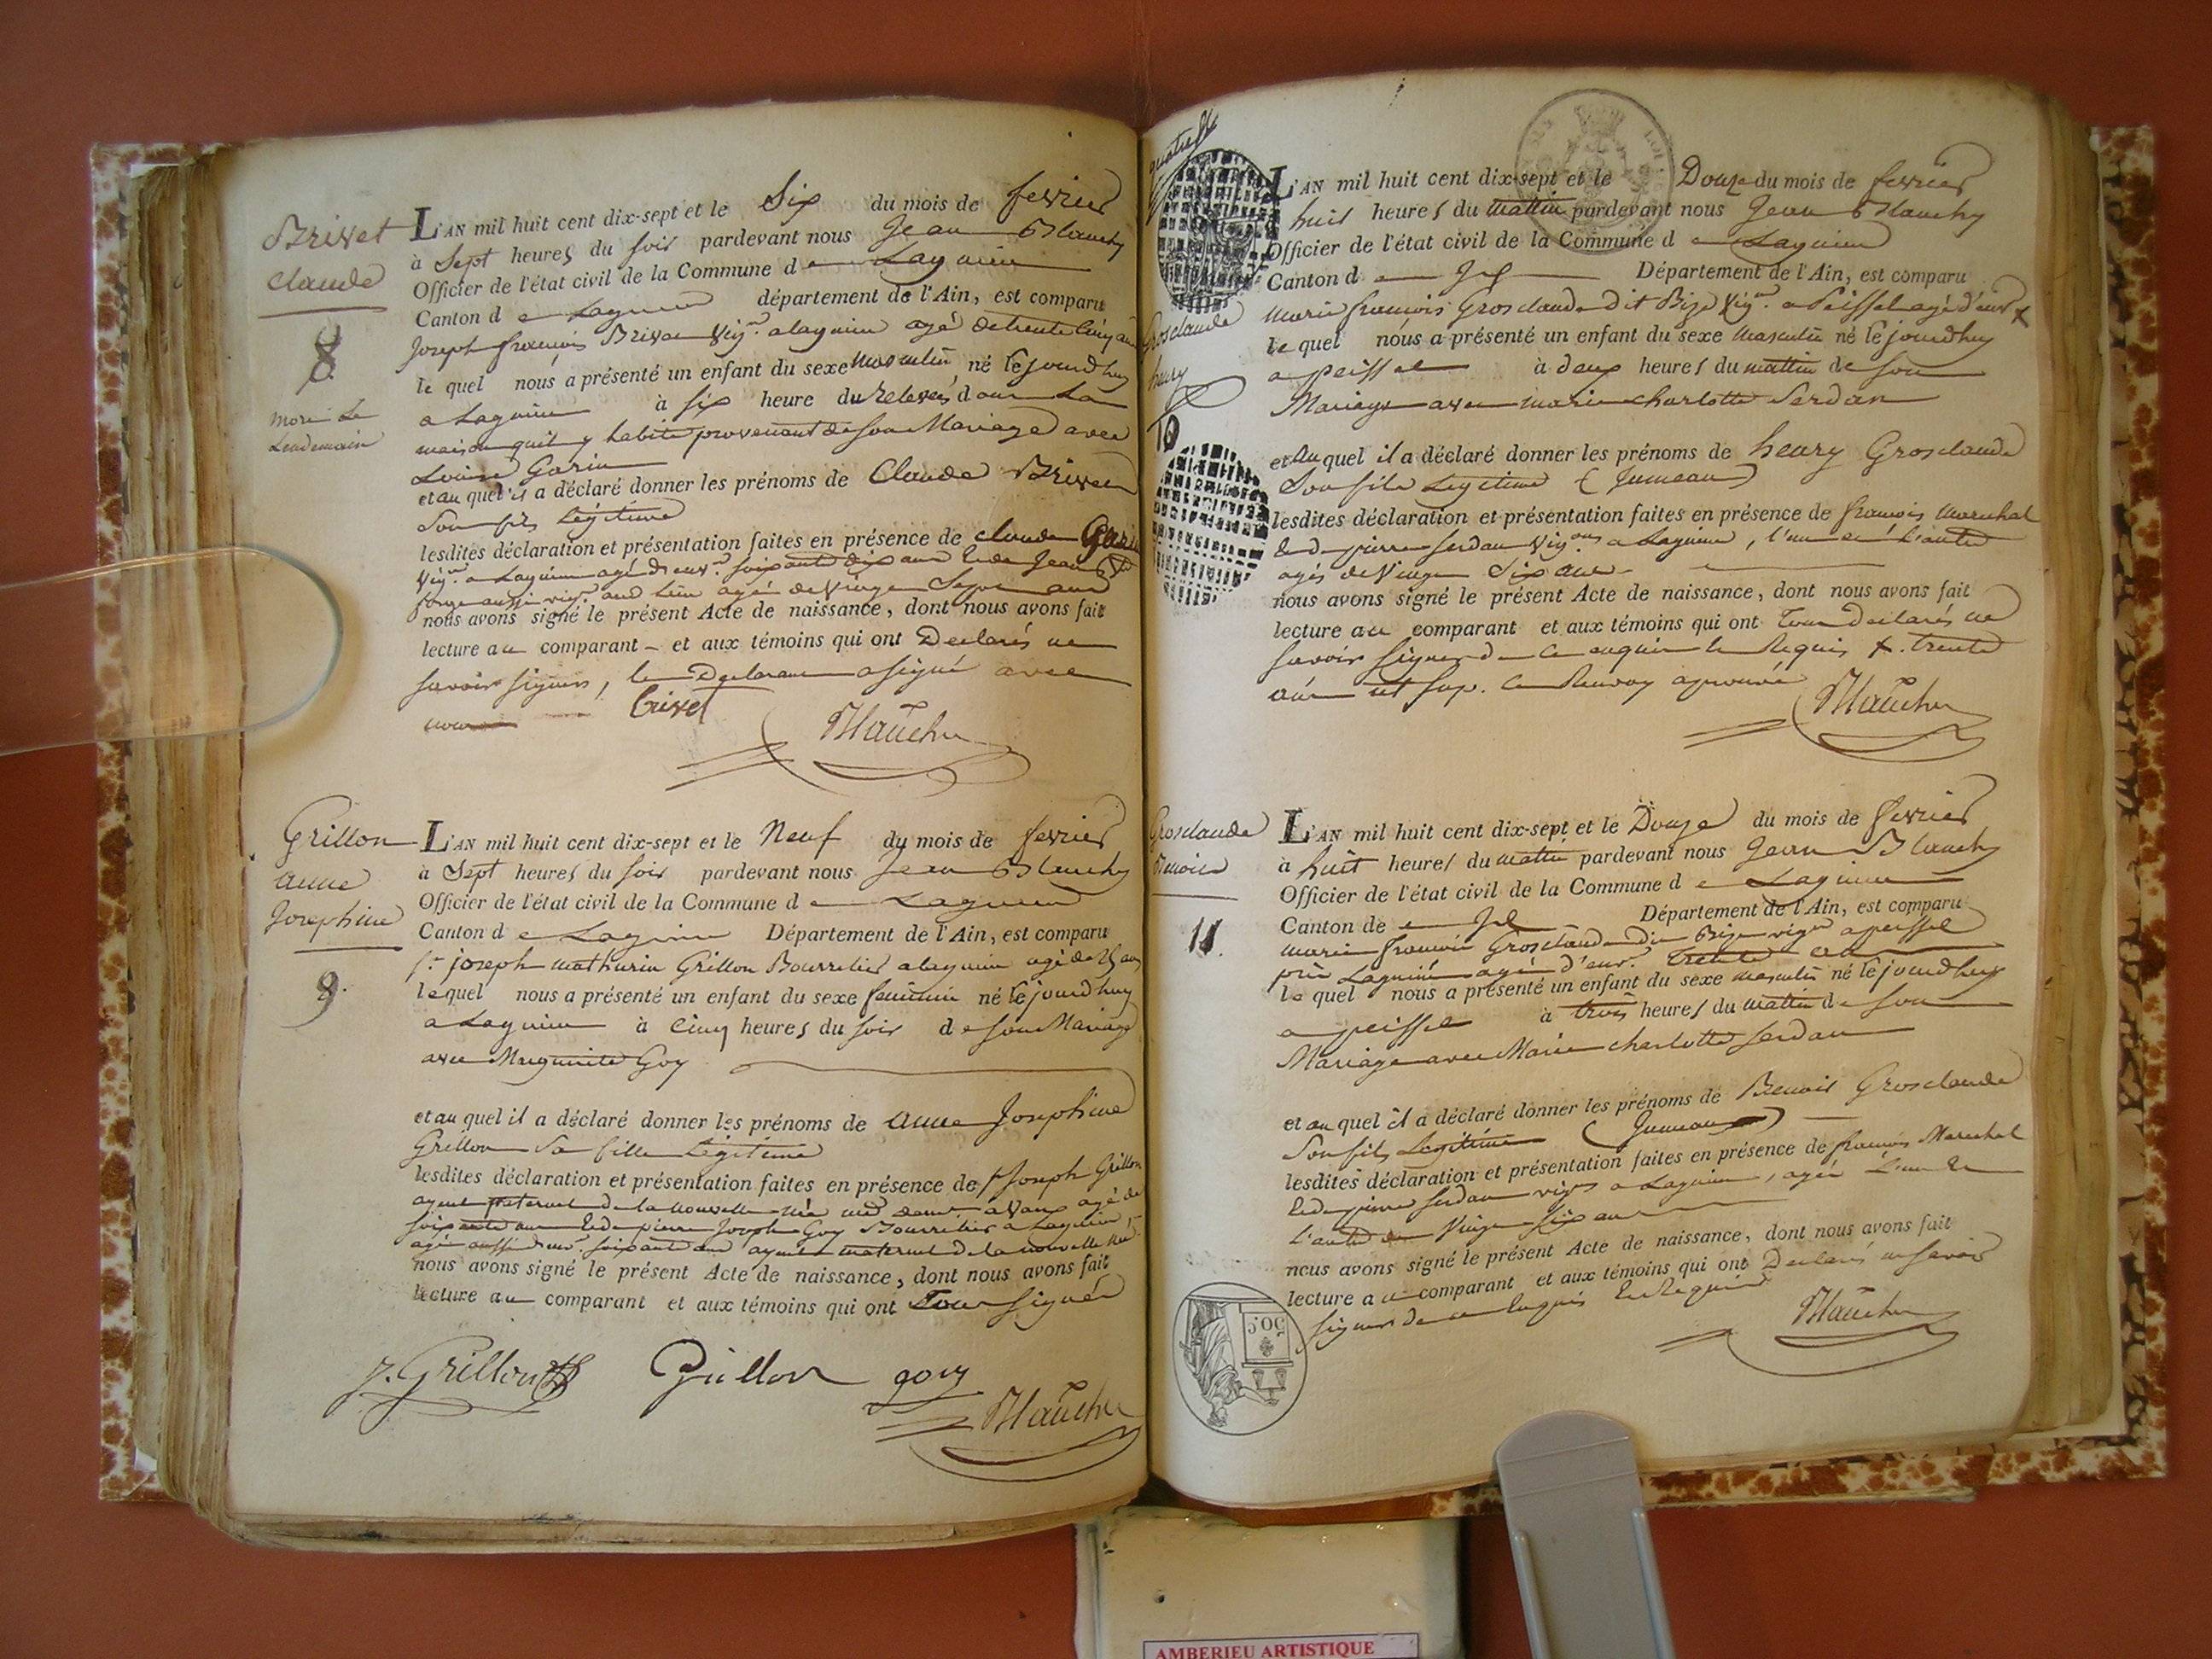 Brivet
Claude
8
mort le
Lendemain
L'AN mil huit cent dix-sept et le Six du mois de fevrier
à Sept heures du soir pardevant nous Jean Blanchy
Officier de l'état civil de la Commune de Lagnieu
Canton de Lagnieu département de l'Ain, est comparu
Joseph françois Brivet Vig.on a lagnieu agé de trente Cinq ans
le quel nous a présenté un enfant du sexe masculin né le jourdhuy
a Lagnieu à six heure du relevée dans La
maison quil y habite provenant de son Mariage avec
Louise Garin
et au quel il a déclaré donner les prénoms de Claude Brivet
Son fils Légitime
lesdites déclaration et présentation faites en présence de claude Garin
Vig.on a Lagnieu agé d'env.on soixante dix ans Et de Jean
aussi vig.on aud lieu agé de Vingt Sept ans
nous avons signé le présent Acte de naissance, dont nous avons fait
lecture au comparant et aux témoins qui ont Declarés ne
savoir signer, le Declarant a signé avec
nous
brivet
Blanchy
Grillon
anne
Josephine
9.
L'AN mil huit cent dix-sept et le Neuf du mois de fevrier
à Sept heures du soir pardevant nous Jean Blanchy
Officier de l'état civil de la Commune de Lagnieu
Canton de Lagnieu Département de l'Ain, est comparu
s.r joseph mathurin Grillon Bourrelier a lagnieu agé de 25 ans
lequel nous a présenté un enfant du sexe feminin né le jourdhuy
a Lagnieu à Cinq heures du soir de son Mariage
avec Marguerite Goy
et au quel il a déclaré donner les prénoms de anne Josephine
Grillon Sa fille Légitime
lesdites déclaration et présentation faites en présence de s.r Joseph Grillon
ayeul paternel de la nouvelle née a Vaux agé de
soixante ans Et de pierre Joseph Goy Bourrelier a Lagnieu
agé aussi d'env.on soixante ans ayeul maternel de la nouvelle née
nous avons signé le présent Acte de naissance, dont nous avons fait
lecture au comparant et aux témoins qui ont Tous signés
J. Grillon Grillon goy
Blanchy
Grosclaude
henry
10
L'AN mil huit cent dix-sept et le Douze du mois de fevrier
huit heures du mattin pardevant nous Jean Blanchy
Officier de l'état civil de la Commune de Lagnieu
Canton de Département de l'Ain, est comparu
marie françois Grosclaude dit Bize Vig.on a Peissel agé d'env.on x
le quel nous a présenté un enfant du sexe masculin né le jourdhuy
a peissel à deux heures du mattin de son
Mariage avec marie charlotte Serdan
et au quel il a déclaré donner les prénoms de henry Grosclaude
Son fils Legitime (Jumeau)
lesdites déclaration et présentation faites en présence de françois marechal
et de pierre serdan Vig.ons a Lagnieu, l'un et L'autre
agés de Vingt Six ans
nous avons signé le présent Acte de naissance, dont nous avons fait
lecture au comparant et aux témoins qui ont Tous declarés ne
savoir signer de ce enquis et Requis x. trente
ans Le Renvoy aprouvé
Blanchy
Grosclaude
Benoit
11.
L'AN mil huit cent dix-sept et le Douze du mois de fevrier
à huit heures du mattin pardevant nous Jean Blanchy
Officier de l'état civil de la Commune de Lagnieu
Canton de Département de l'Ain, est comparu
marie françois Grosclaude dit Bize vig.on a peissel
près Lagnieu agé d'env.on Trente ans
le quel nous a présenté un enfant du sexe masculin né le jourdhuy
a peissel à trois heures du mattin de son
Mariage avec Marie charlotte serdan
et au quel il a déclaré donner les prénoms de Benoit Grosclaude
Son fils Legitime (Jumeau)
lesdites déclaration et présentation faites en présence de françois Marechal
Et de pierre serdan vig.ons a Lagnieu, agés L'un Et
L'autre de Vingt six ans
nous avons signé le présent Acte de naissance, dont nous avons fait
lecture au comparant et aux témoins qui ont Declarés ne savoir
signer de ce Enquis Et Requis
Blanchy
50 c
AMBERIEU ARTISTIQUE